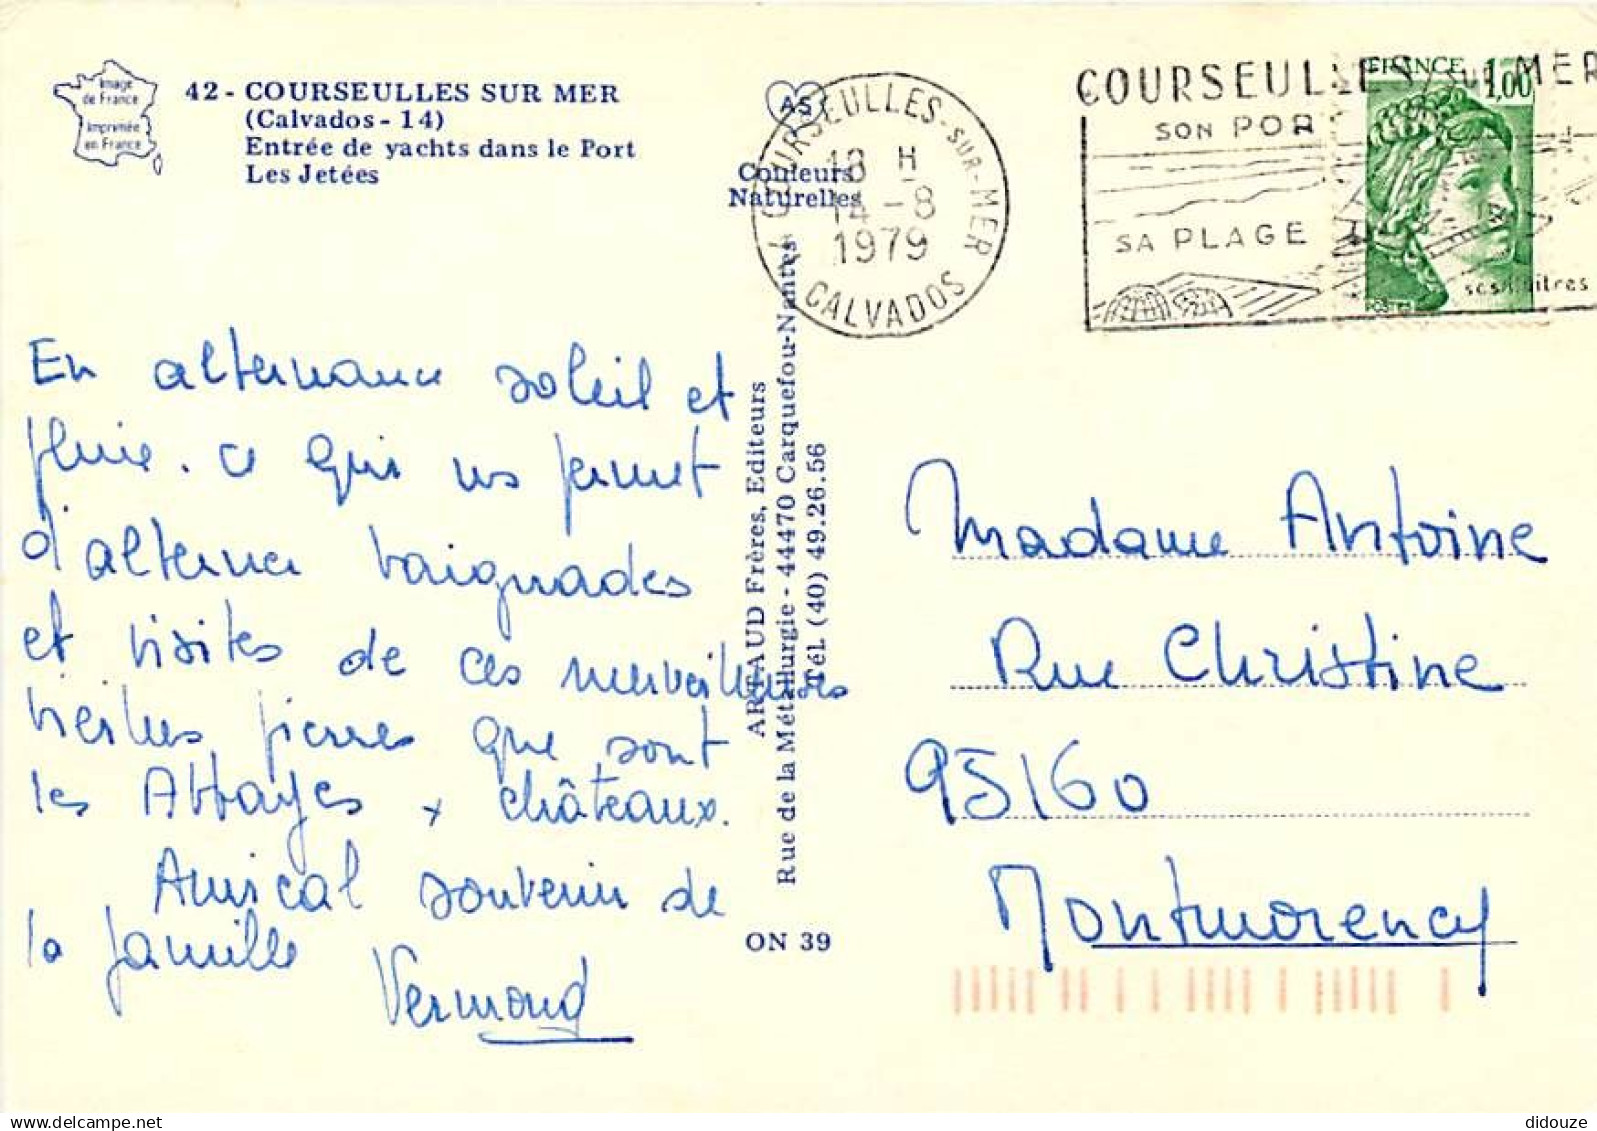 Image
de France
Imprimée
en France
42 - COURSEULLES SUR MER
(Calvados - 14)
Entrée de yachts dans le Port
Les Jetées
AS
Couleurs
Naturelles
COURSEULLES-SUR-MER
18 H
14 -8
1979
CALVADOS
COURSEULLES SUR MER
SON POR
SA PLAGE
ses huitres
FRANCE 1,00
POSTES
En alternance soleil et
pluie. ce qui ns permet
d'alterner baignades
et visites de ces merveilleuses
vieilles pierres que sont
les Abbayes + châteaux.
Amical souvenir de
la famille
Vermond
ARTAUD Frères, Editeurs
Rue de la Métallurgie - 44470 Carquefou-Nantes
Tél. (40) 49.26.56
ON 39
Madame Antoine
Rue Christine
95160
Montmorency
didouze